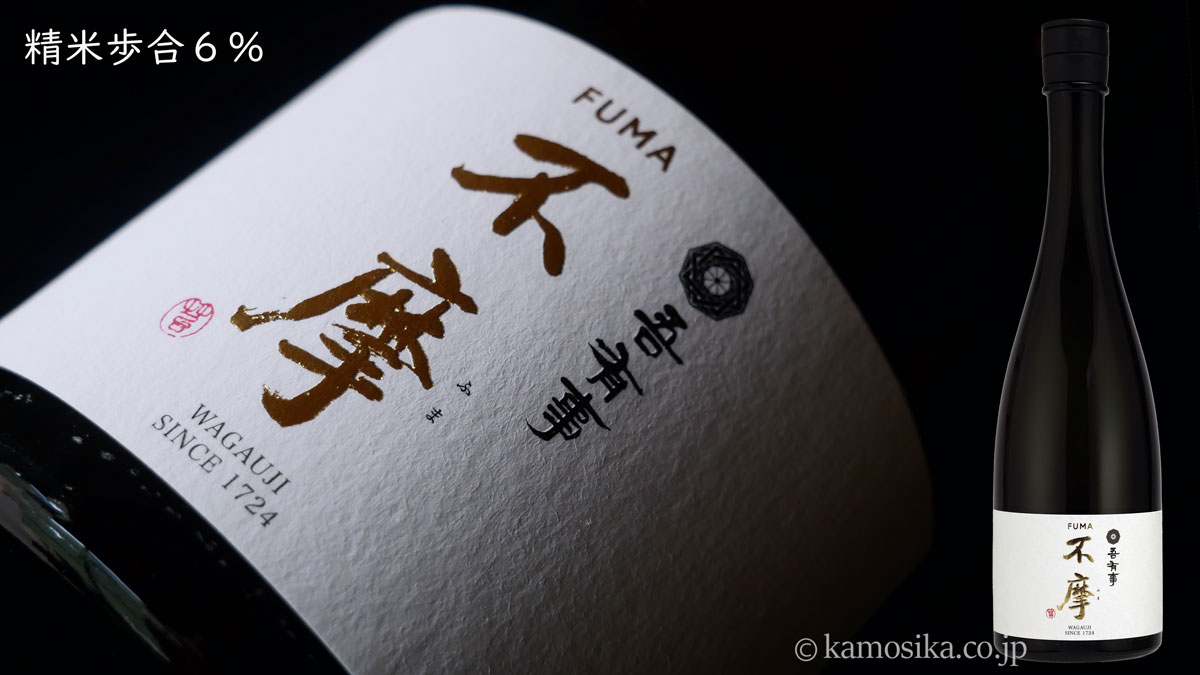 精米歩合６％
FUMA
不摩
ふま
吾有事
WAGAUJI
SINCE 1724
FUMA
不摩
吾有事
WAGAUJI
SINCE 1724
© kamosika.co.jp